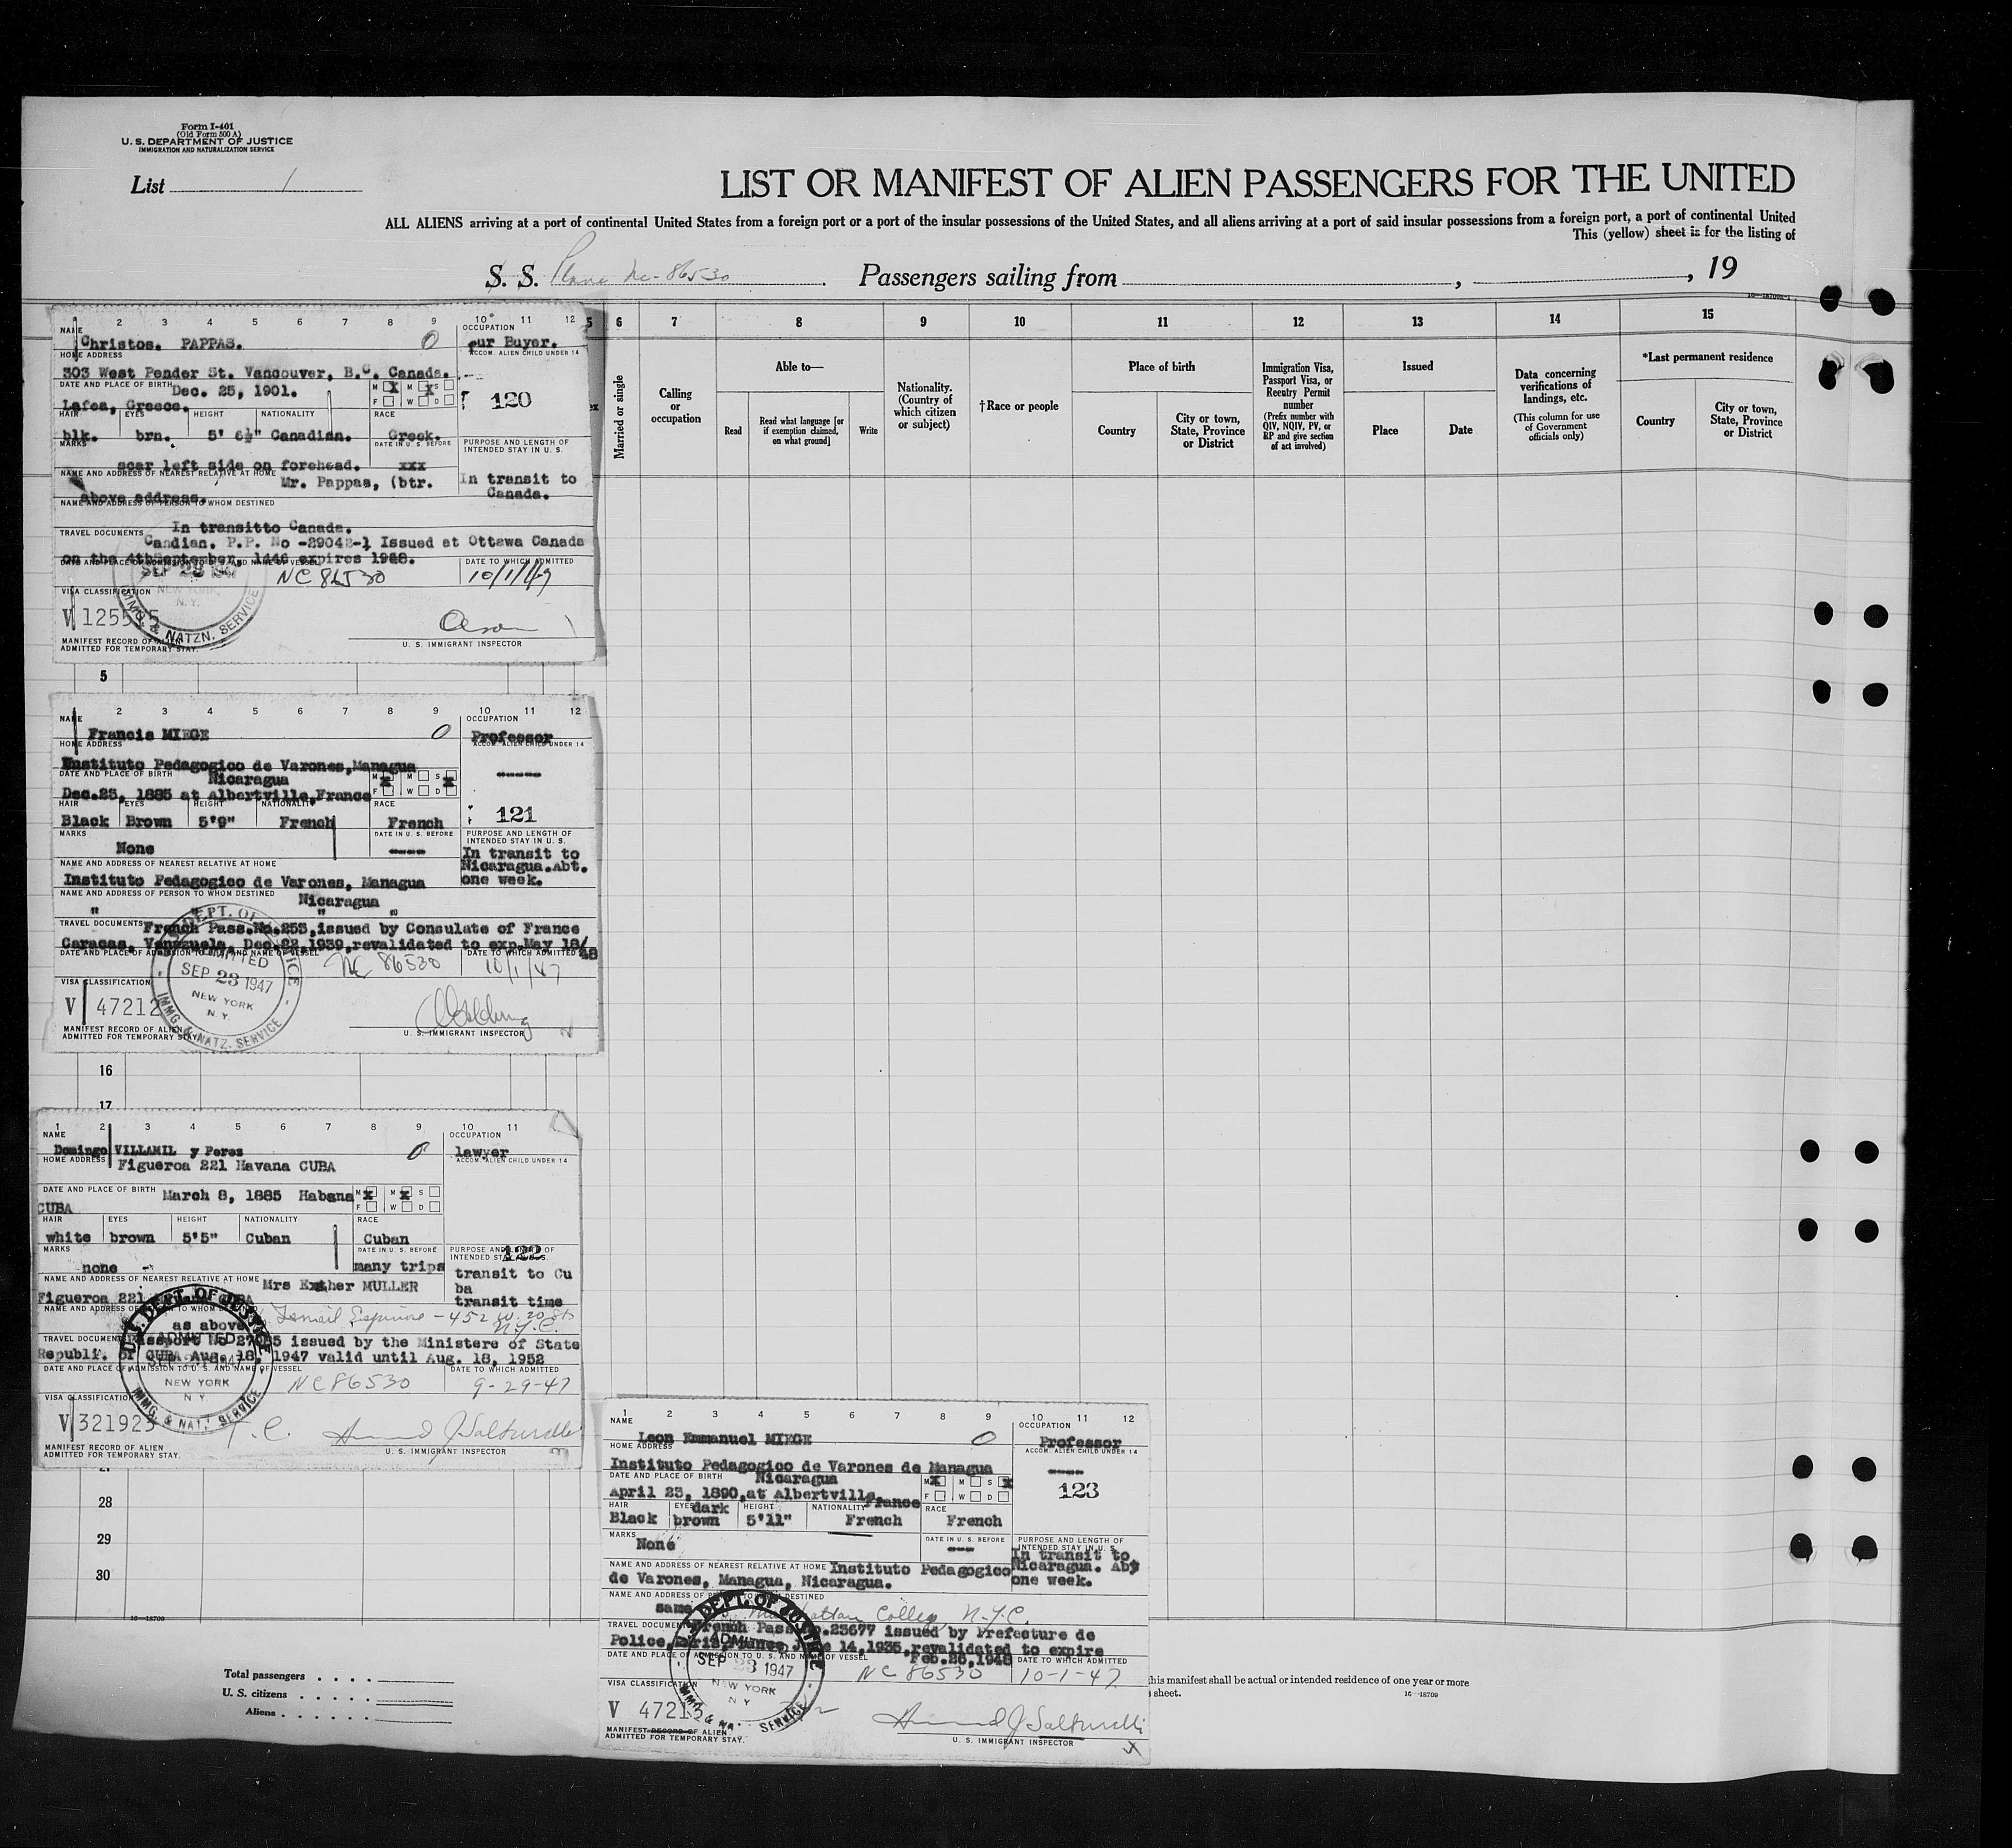 Form I-401
(Old Form 500 A)
U. S. DEPARTMENT OF JUSTICE
IMMIGRATION AND NATURALIZATION SERVICE
List 1
LIST OR MANIFEST OF ALIEN PASSENGERS FOR THE UNITED
ALL ALIENS arriving at a port of continental United States from a foreign port or a port of the insular possessions of the United States, and all aliens arriving at a port of said insular possessions from a foreign port, a port of continental United
This (yellow) sheet is for the listing of
S. S. Plane Nc-86530. Passengers sailing from , , 19
16—18709-1
1 2 3 4 5 6 7 8 9 10 11 12
NAME
Christos. PAPPAS. 0
OCCUPATION
fur Buyer.
ACCOM. ALIEN CHILD UNDER 14
HOME ADDRESS
303 West Pender St. Vancouver, B.C. Canada.
DATE AND PLACE OF BIRTH Dec. 25, 1901.
M X M X S
F W D
120
Lafea, Greece.
HAIR EYES HEIGHT NATIONALITY RACE
blk. brn. 5' 6½" Canadian. Greek.
MARKS DATE IN U. S. BEFORE
PURPOSE AND LENGTH OF
INTENDED STAY IN U. S.
scar left side on forehead. xxx
NAME AND ADDRESS OF NEAREST RELATIVE AT HOME
Mr. Pappas, (btr.
In transit to
Canada.
above address.
NAME AND ADDRESS OF PERSON TO WHOM DESTINED
In transitto Canada.
TRAVEL DOCUMENTS
Candian. P.P. No -29042-1 Issued at Ottawa Canada
on the 4thSeptember, 1446 expires 1948.
DATE AND PLACE OF ADMISSION TO U. S. AND NAME OF VESSEL DATE TO WHICH ADMITTED
SEP 23 NC 86530 10/1/47
VISA CLASSIFICATION
NEW YORK,
N. Y.
V 1255
IMMG. & NATZN. SERVICE
MANIFEST RECORD OF ALIEN
ADMITTED FOR TEMPORARY STAY.
U. S. IMMIGRANT INSPECTOR
5 6 7 8 9 10 11 12 13 14 15
Married or single
Calling
or
occupation
Able to—
Read
Read what language [or
if exemption claimed,
on what ground]
Write
Nationality.
(Country of
which citizen
or subject)
†Race or people
Place of birth
Country
City or town,
State, Province
or District
Immigration Visa,
Passport Visa, or
Reentry Permit
number
(Prefix number with
QIV, NQIV, PV, or
RP and give section
of act involved)
Issued
Place
Date
Data concerning
verifications of
landings, etc.
(This column for use
of Government
officials only)
*Last permanent residence
Country
City or town,
State, Province
or District
5
2 3 4 5 6 7 8 9 10 11 12
NAME
Francis MIEGE 0
OCCUPATION
Professor
ACCOM. ALIEN CHILD UNDER 14
HOME ADDRESS
Instituto Pedagogico de Varones,Managua
DATE AND PLACE OF BIRTH Nicaragua
M X M S X
F W D
-----
Dec.25, 1885 at Albertville,France
HAIR EYES HEIGHT NATIONALITY RACE
121
Black Brown 5'9" French French
MARKS DATE IN U. S. BEFORE
PURPOSE AND LENGTH OF
INTENDED STAY IN U. S.
None ----
In transit to
Nicaragua.Abt.
one week.
NAME AND ADDRESS OF NEAREST RELATIVE AT HOME
Instituto Pedagogico de Varones, Managua
NAME AND ADDRESS OF PERSON TO WHOM DESTINED
Nicaragua
" " "
TRAVEL DOCUMENTS
French Pass.No.255,issued by Consulate of France
Caracas, Venezuela, Dec.22,1939,revalidated to exp.May 18/48
DATE AND PLACE OF ADMISSION TO U. S. AND NAME OF VESSEL DATE TO WHICH ADMITTED
DEPT. OF JUSTICE
ADMITTED
SEP 23 1947
NEW YORK
N. Y.
IMMG. & NATZ. SERVICE
NC 86530 10/1/47
VISA CLASSIFICATION
V 47212
MANIFEST RECORD OF ALIEN
ADMITTED FOR TEMPORARY STAY.
U. S. IMMIGRANT INSPECTOR
2
16
17
1 2 3 4 5 6 7 8 9 10 11
NAME
Domingo VILLAMIL y Peres 0
OCCUPATION
lawyer
ACCOM. ALIEN CHILD UNDER 14
HOME ADDRESS
Figueroa 221 Havana CUBA
DATE AND PLACE OF BIRTH
March 8, 1885 Habana
CUBA
M X M X S
F W D
HAIR EYES HEIGHT NATIONALITY RACE
white brown 5'5" Cuban Cuban
MARKS DATE IN U. S. BEFORE
122
PURPOSE AND LENGTH OF
INTENDED STAY IN U. S.
none - many trips
transit to Cu
ba
transit time
NAME AND ADDRESS OF NEAREST RELATIVE AT HOME
Mrs Esther MULLER
Figueroa 221 CUBA
NAME AND ADDRESS OF PERSON TO WHOM DESTINED
as above
452 W. 20 St
N.Y.C.
TRAVEL DOCUMENTS
Passport No issued by the Ministere of State
Republi. of CUBA Aug. 18, 1947 valid until Aug. 18, 1952
DATE AND PLACE OF ADMISSION TO U. S. AND NAME OF VESSEL DATE TO WHICH ADMITTED
U.S. DEPT. OF JUSTICE
ADMITTED
NEW YORK
N Y
IMMG. & NATZ SERVICE
NC86530 9-29-47
VISA CLASSIFICATION
V 321923 T.C.
MANIFEST RECORD OF ALIEN
ADMITTED FOR TEMPORARY STAY.
U. S. IMMIGRANT INSPECTOR
3
28
29
30
16—18709
1 2 3 4 5 6 7 8 9 10 11 12
NAME
Leon Emmanuel MIEGE 0
OCCUPATION
Professor
ACCOM. ALIEN CHILD UNDER 14
HOME ADDRESS
Instituto Pedagogico de Varones de Managua
DATE AND PLACE OF BIRTH Nicaragua
M X M S X
F W D
----
123
April 23, 1890,at Albertville,France
HAIR EYES HEIGHT NATIONALITY RACE
Black dark brown 5'11" French French
MARKS DATE IN U. S. BEFORE
PURPOSE AND LENGTH OF
INTENDED STAY IN U. S.
None ---
In transit to
Nicaragua. Abt
one week.
NAME AND ADDRESS OF NEAREST RELATIVE AT HOME
Instituto Pedagogico
de Varones, Managua, Nicaragua.
NAME AND ADDRESS OF PERSON TO WHOM DESTINED
same Manhattan College, N.Y.C.
TRAVEL DOCUMENTS
French Pass No.23677 issued by Prefecture de
Police,Paris,France June 14,1935,revalidated to expire
Feb.26,1948
DATE AND PLACE OF ADMISSION TO U. S. AND NAME OF VESSEL DATE TO WHICH ADMITTED
DEPT. OF JUSTICE
ADMITTED
SEP 23 1947
NEW YORK
N Y
SERVICE
NC 86530 10-1-47
VISA CLASSIFICATION
V 47213
MANIFEST RECORD OF ALIEN
ADMITTED FOR TEMPORARY STAY.
U. S. IMMIGRANT INSPECTOR
Total passengers . . . .
U. S. citizens . . . . .
Aliens . . . . . .
this manifest shall be actual or intended residence of one year or more
sheet.
16—18709